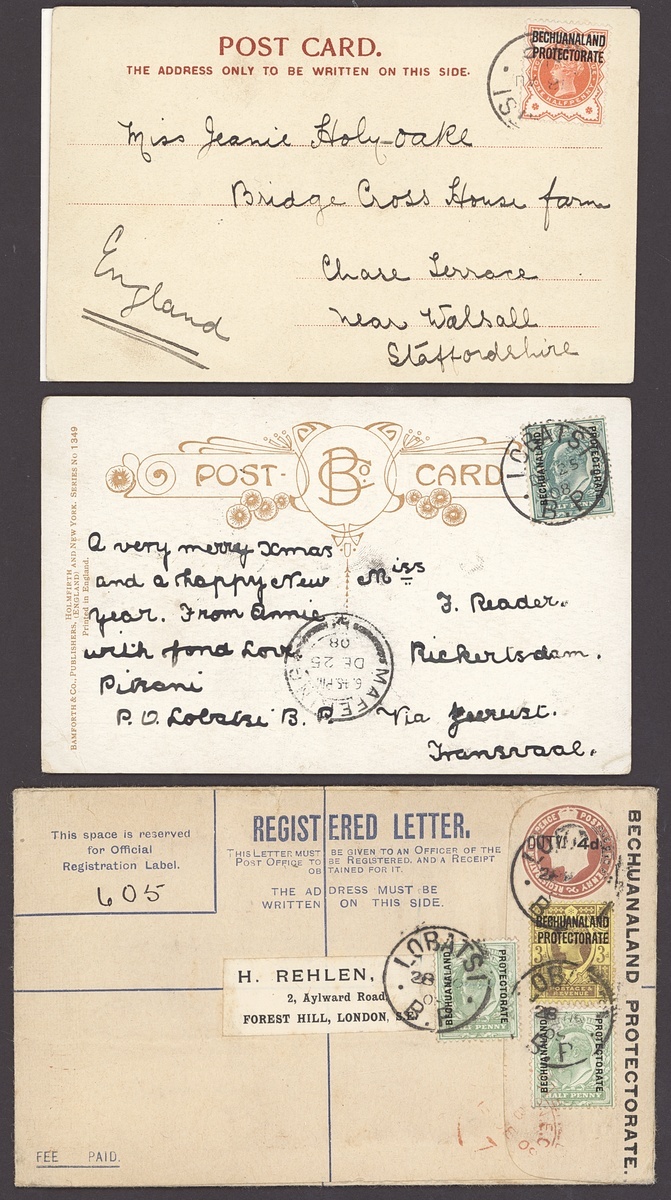 POST CARD.
THE ADDRESS ONLY TO BE WRITTEN ON THIS SIDE.
BECHUANALAND
PROTECTORATE
Miss Jeanie Holy-oake
Bridge Cross House farm
Chase Terrace
near Walsall
Staffordshire
England
POST-
B Co
CARD
BECHUANALAND
PROTECTORATE
HALF PENNY
LOBATSI
08
B. P.
BAMFORTH & CO., PUBLISHERS, HOLMFIRTH (ENGLAND) AND NEW YORK. SERIES NO 1349
Printed in England.
A very merry Xmas
and a happy New
year. From Annie
with fond Love
Pitsani
P.O. Lobatsi B. P.
Miss
F. Reader.
Rickertsdam.
Via Zeerust.
Transvaal.
MAFEKING
6.45 PM
DE 25
08
This space is reserved
for Official
Registration Label.
605
REGISTERED LETTER.
THIS LETTER MUST BE GIVEN TO AN OFFICER OF THE
POST OFFICE TO BE REGISTERED, AND A RECEIPT
OBTAINED FOR IT.
THE ADDRESS MUST BE
WRITTEN ON THIS SIDE.
H. REHLEN,
2, Aylward Road,
FOREST HILL, LONDON, S.E.
LOBATSI
28
B. P.
BECHUANALAND
PROTECTORATE
HALF PENNY
4d
BECHUANALAND
PROTECTORATE
3d
POSTAGE &
REVENUE
BECHUANALAND
PROTECTORATE
HALF PENNY
BECHUANALAND PROTECTORATE.
FEE PAID.